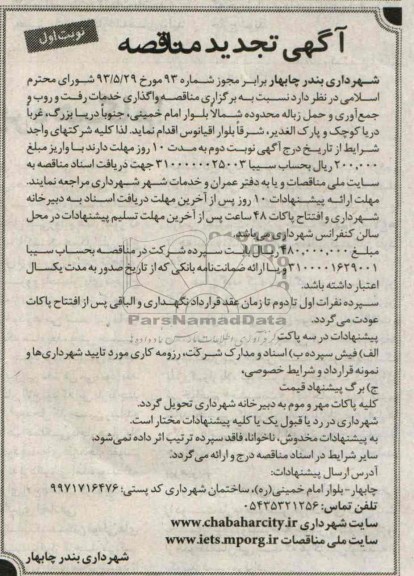 نوبت اول
آگهی تجدید مناقصه
شهرداری بندر چابهار برابر مجوز شماره ۹۳ مورخ ۹۳/۵/۲۹ شورای محترم
اسلامی در نظر دارد نسبت به برگزاری مناقصه واگذاری خدمات رفت و روب و
جمع‌آوری و حمل زباله محدوده شمالاً بلوار امام خمینی، جنوباً دریا بزرگ، غرباً
دریا کوچک و پارک الغدیر، شرقاً بلوار اقیانوس اقدام نماید. لذا کلیه شرکتهای واجد
شرایط از تاریخ درج آگهی نوبت دوم به مدت ۱۰ روز مهلت دارند با واریز مبلغ
۲۰۰،۰۰۰ ریال بحساب سیبا ۳۱۰۰۰۰۰۰۲۵۰۰۳ جهت دریافت اسناد مناقصه به
سایت ملی مناقصات و یا به دفتر عمران و خدمات شهر شهرداری مراجعه نمایند.
مهلت ارائه پیشنهادات ۱۰ روز پس از آخرین مهلت دریافت اسناد به دبیرخانه
شهرداری و افتتاح پاکات ۴۸ ساعت پس از آخرین مهلت تسلیم پیشنهادات در محل
سالن کنفرانس شهرداری می‌باشد.
مبلغ ۴۸۰،۰۰۰،۰۰۰ ریال بابت سپرده شرکت در مناقصه بحساب سیبا
۳۱۰۰۰۰۱۶۲۹۰۰۱ و یا ارائه ضمانت‌نامه بانکی که از تاریخ صدور به مدت یکسال
اعتبار داشته باشد.
سپرده نفرات اول تا دوم تا زمان عقد قرارداد نگهداری و الباقی پس از افتتاح پاکات
عودت می‌گردد.
ParsNamadData
پیشنهادات در سه پاکت
الف) فیش سپرده ب) اسناد و مدارک شرکت، رزومه کاری مورد تایید شهرداری‌ها و
نمونه قرارداد و شرایط خصوصی،
ج) برگ پیشنهاد قیمت
کلیه پاکات مهر و موم به دبیرخانه شهرداری تحویل گردد.
شهرداری در رد یا قبول یک یا کلیه پیشنهادات مختار است.
به پیشنهادات مخدوش، ناخوانا، فاقد سپرده ترتیب اثر داده نمی‌شود.
سایر شرایط در اسناد مناقصه درج و ارائه می‌گردد.
آدرس ارسال پیشنهادات:
چابهار- بلوار امام خمینی(ره)، ساختمان شهرداری کد پستی: ۹۹۷۱۷۱۶۴۷۶
تلفن تماس: ۰۵۴۳۵۳۲۱۲۵۶
سایت شهرداری www.chabaharcity.ir
سایت ملی مناقصات www.iets.mporg.ir
شهرداری بندر چابهار